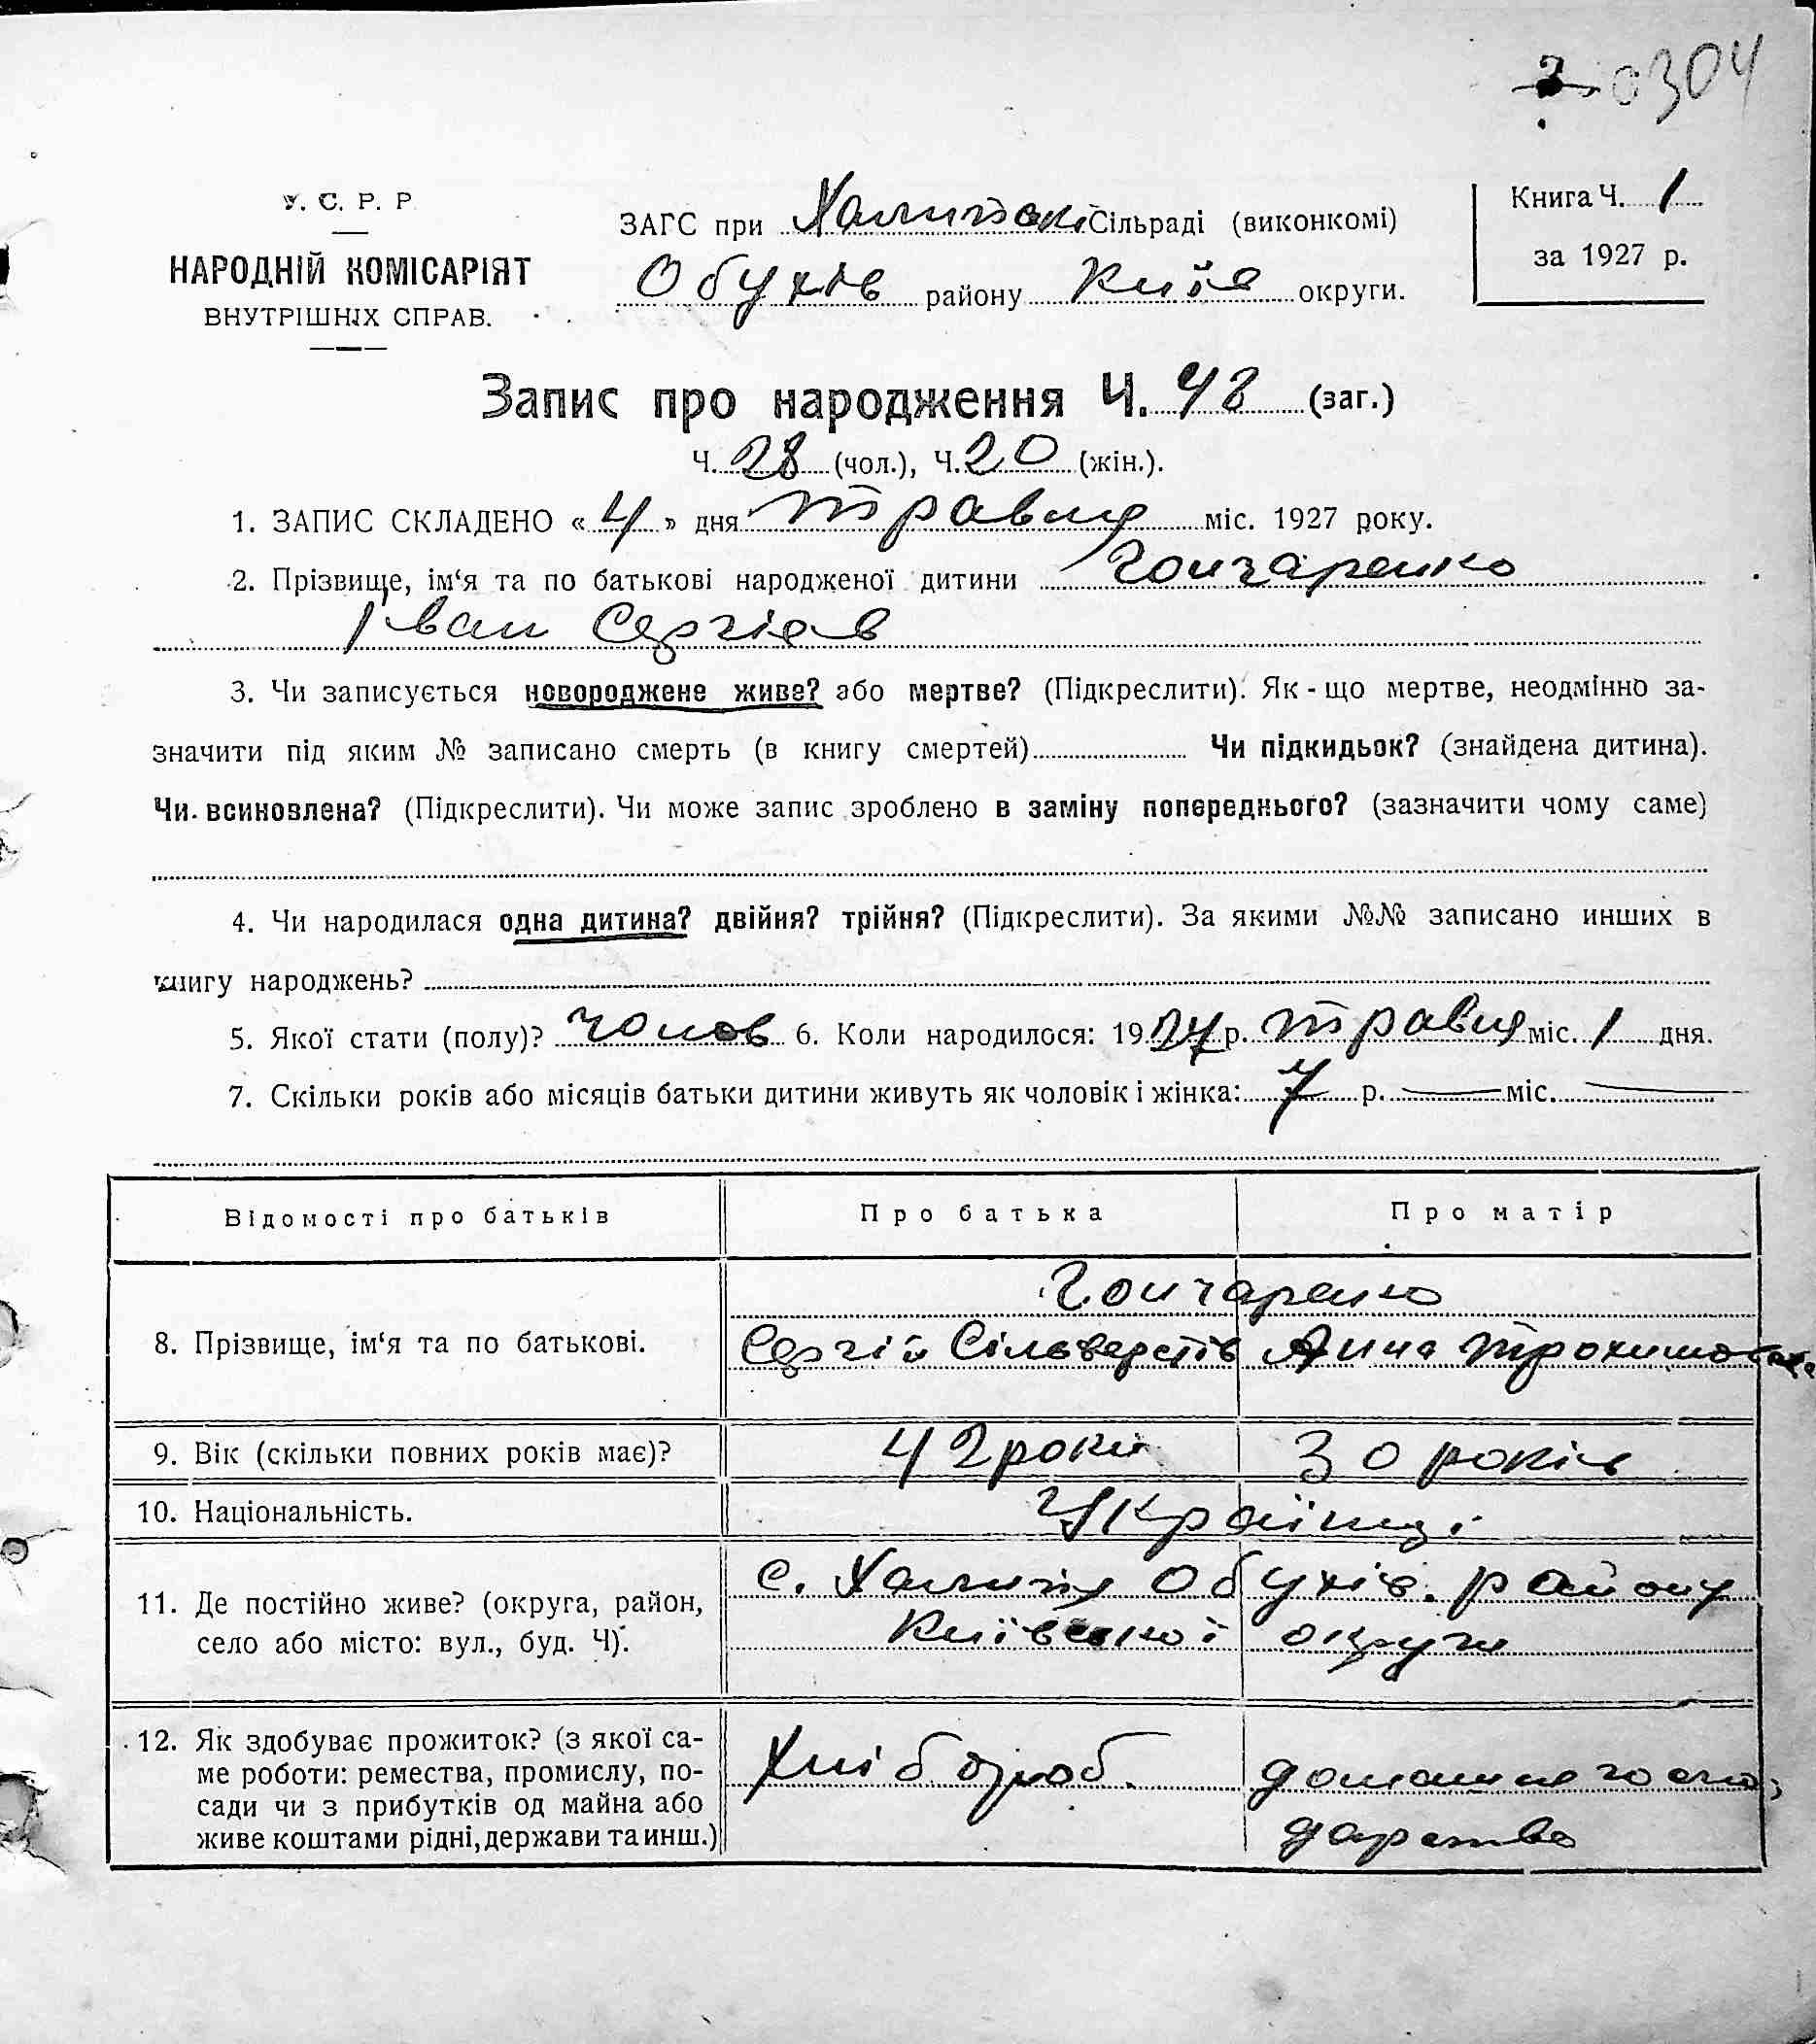 0304
У. С. Р. Р
НАРОДНІЙ КОМІСАРІЯТ
ВНУТРІШНІХ СПРАВ.
ЗАГС при Халипській Сільраді (виконкомі)
Обухів району Київ округи.
Книга Ч. 1
за 1927 р.
Запис про народження Ч. 48 (заг.)
Ч. 28 (чол.), Ч. 20 (жін.).
1. ЗАПИС СКЛАДЕНО « 4 » дня травня міс. 1927 року.
2. Прізвище, ім‘я та по батькові народженої дитини Гончаренко
Іван Сергієв
3. Чи записується новороджене живе? або мертве? (Підкреслити). Як-що мертве, неодмінно за-
значити під яким № записано смерть (в книгу смертей) Чи підкидьок? (знайдена дитина).
Чи всиновлена? (Підкреслити). Чи може запис зроблено в заміну попереднього? (зазначити чому саме)
4. Чи народилася одна дитина? двійня? трійня? (Підкреслити). За якими №№ записано инших в
книгу народжень?
5. Якої стати (полу)? чолов 6. Коли народилося: 1927 р. травня міс. 1 дня.
7. Скільки років або місяців батьки дитини живуть як чоловік і жінка: 7 р. — міс. —
Відомості про батьків Про батька Про матір
Гончаренко
8. Прізвище, ім‘я та по батькові. Сергій Сільверстів Анна Трохимовна
9. Вік (скільки повних років має)? 42 роки 30 років
10. Національність. Українці
с. Халипя Обухів. району
11. Де постійно живе? (округа, район,
село або місто: вул., буд. Ч). Київської округи
12. Як здобуває прожиток? (з якої са-
ме роботи: ремества, промислу, по- Хлібороб. домашнє госпо-
сади чи з прибутків од майна або
живе коштами рідні, держави та инш.) дарство